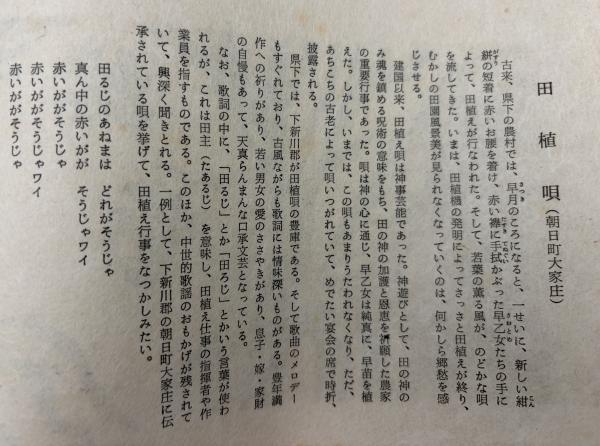 田植唄（朝日町大家庄）
古来、県下の農村では、早月のころになると、一せいに、新しい紺
絣の短着に赤いお腰を着け、赤い襷に手拭かぶった早乙女たちの手に
よって、田植えが行なわれた。そして、若葉の薫る風が、のどかな唄
を流してきた。いまは、田植機の発明によってさっさと田植えが終り、
むかしの田園風景美が見られなくなっていくのは、何かしら郷愁を感
じさせる。
建国以来、田植え唄は神事芸能であった。神遊びとして、田の神の
み魂を鎮める呪術の意味をもち、田の神の加護と恩恵を祈願した農家
の重要行事であった。唄は神の心に通じ、早乙女は純真に、早苗を植
えた。しかし、いまでは、この唄もあまりうたわれなくなり、ただ、
あちこちの古老によって唄いつがれていて、めでたい宴会の席で時折、
披露される。
県下では、下新川郡が田植唄の豊庫である。そして歌曲のメロデー
もすぐれており、古風ながらも歌詞には情味深いものがある。豊年満
作への祈りがあり、若い男女の愛のささやきがあり、息子・嫁・家財
の自慢もあって、天真らんまんな口承文芸となっている。
なお、歌詞の中に、「田るじ」とか「田ろじ」とかいう言葉が使わ
れるが、これは田主（たあるじ）を意味し、田植え仕事の指揮者や作
業員を指すものである。このほか、中世的歌謡のおもかげが残されて
いて、興深く聞きとれる。一例として、下新川郡の朝日町大家庄に伝
承されている唄を挙げて、田植え行事をなつかしみたい。
田るじのあねまは　どれがそうじゃ
真ん中の赤いがが　そうじゃワイ
赤いががそうじゃ
赤いががそうじゃワイ
赤いががそうじゃ